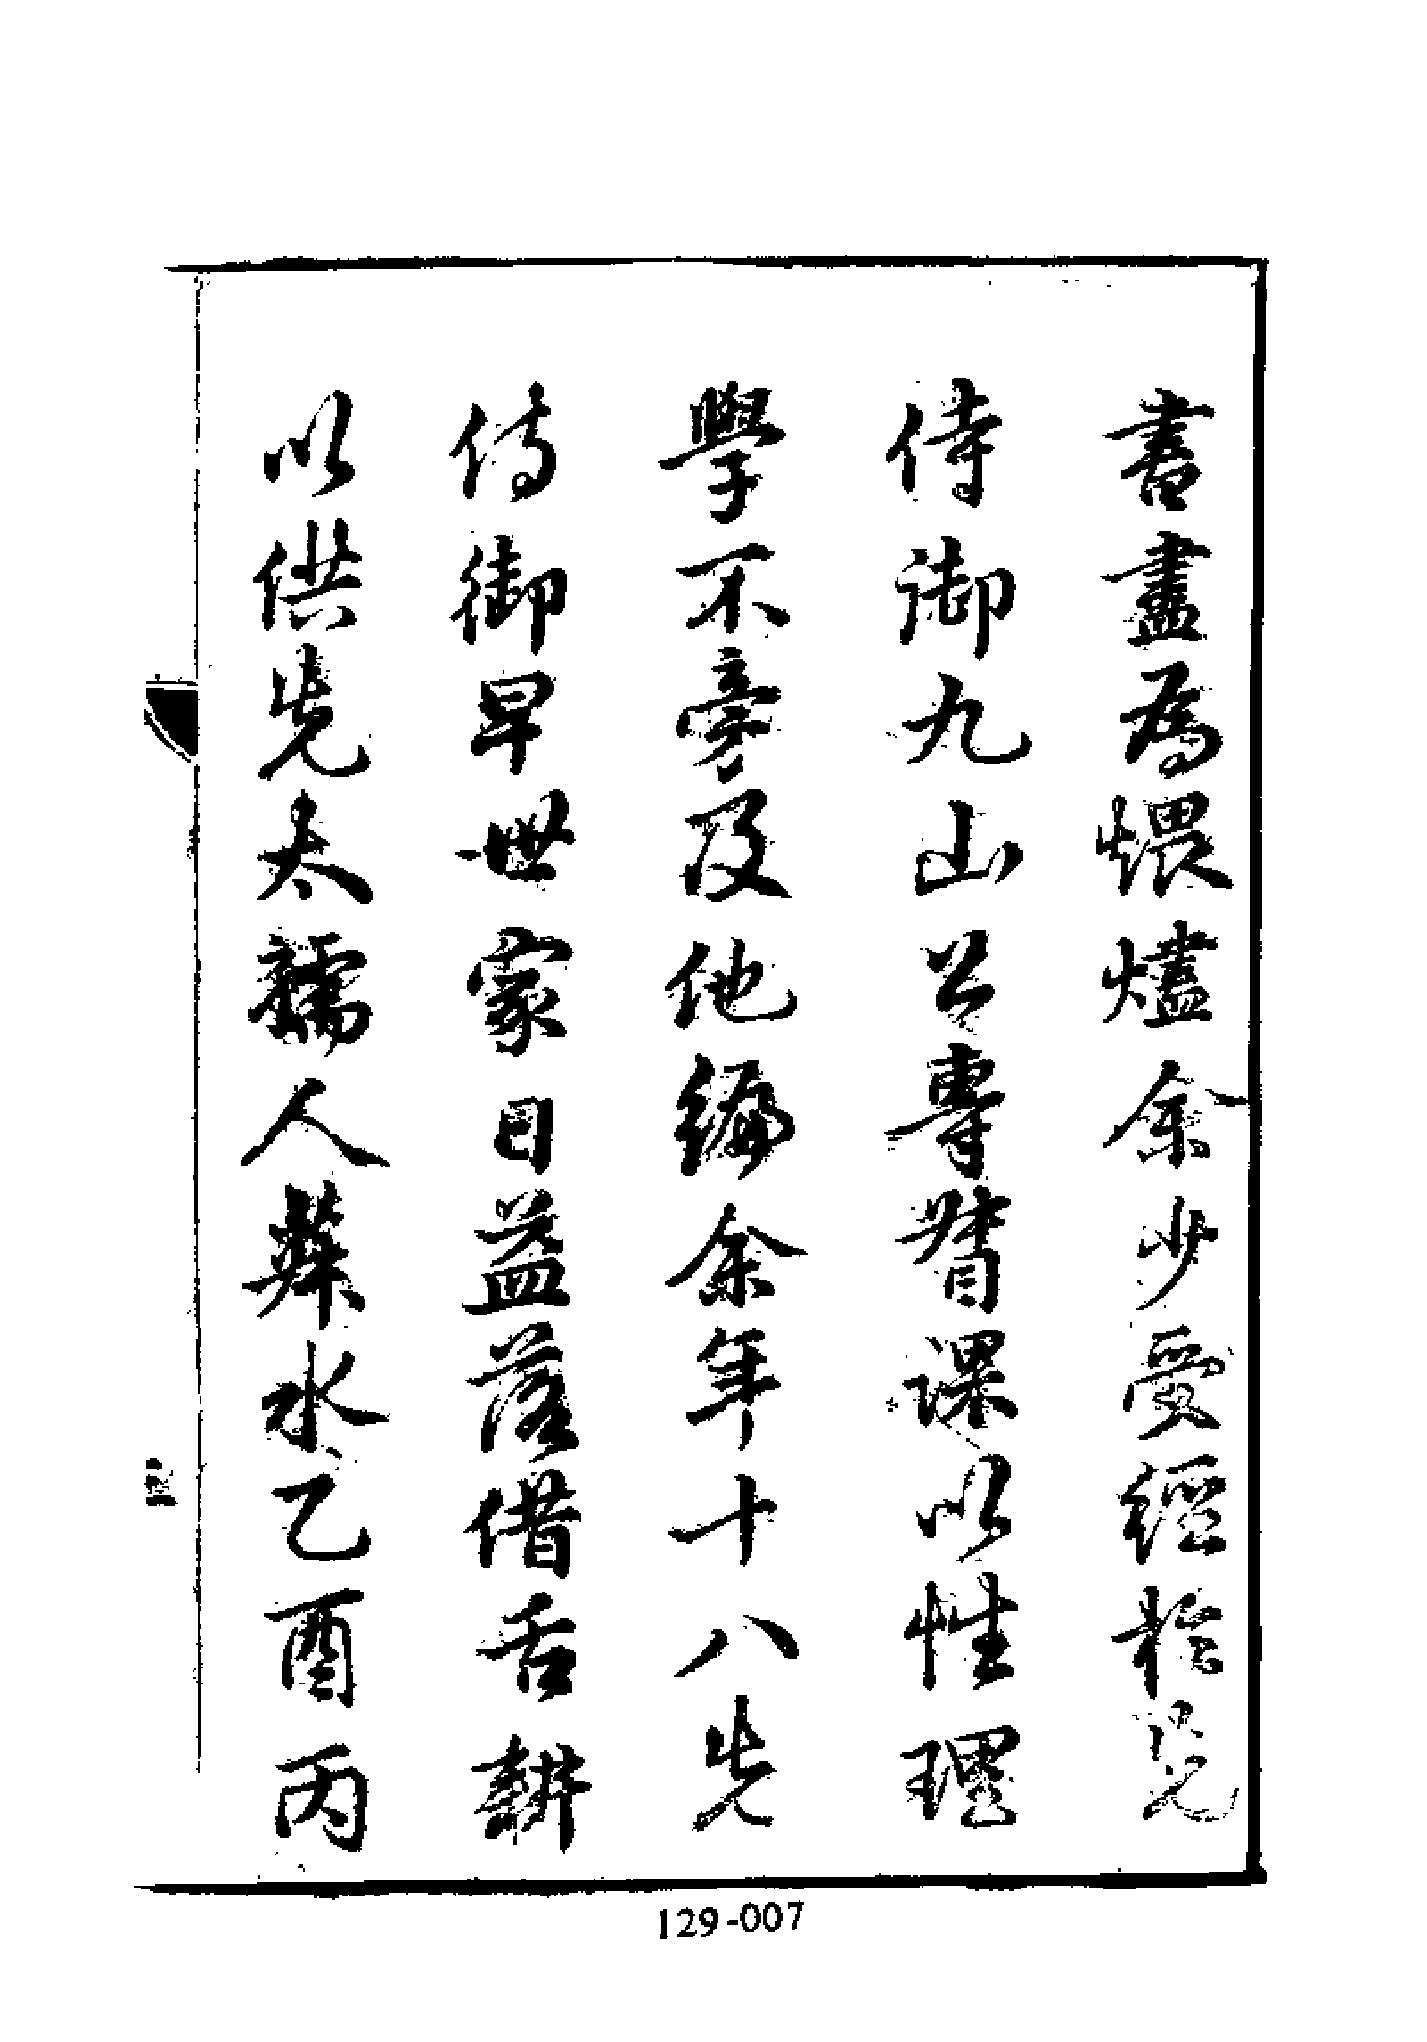 書盡為煨燼余少受經於先
侍御九山公專督課以性理
學不旁及他編余年十八先
侍御早世家日益落借舌耕
以供先太孺人菽水乙酉丙
129-007